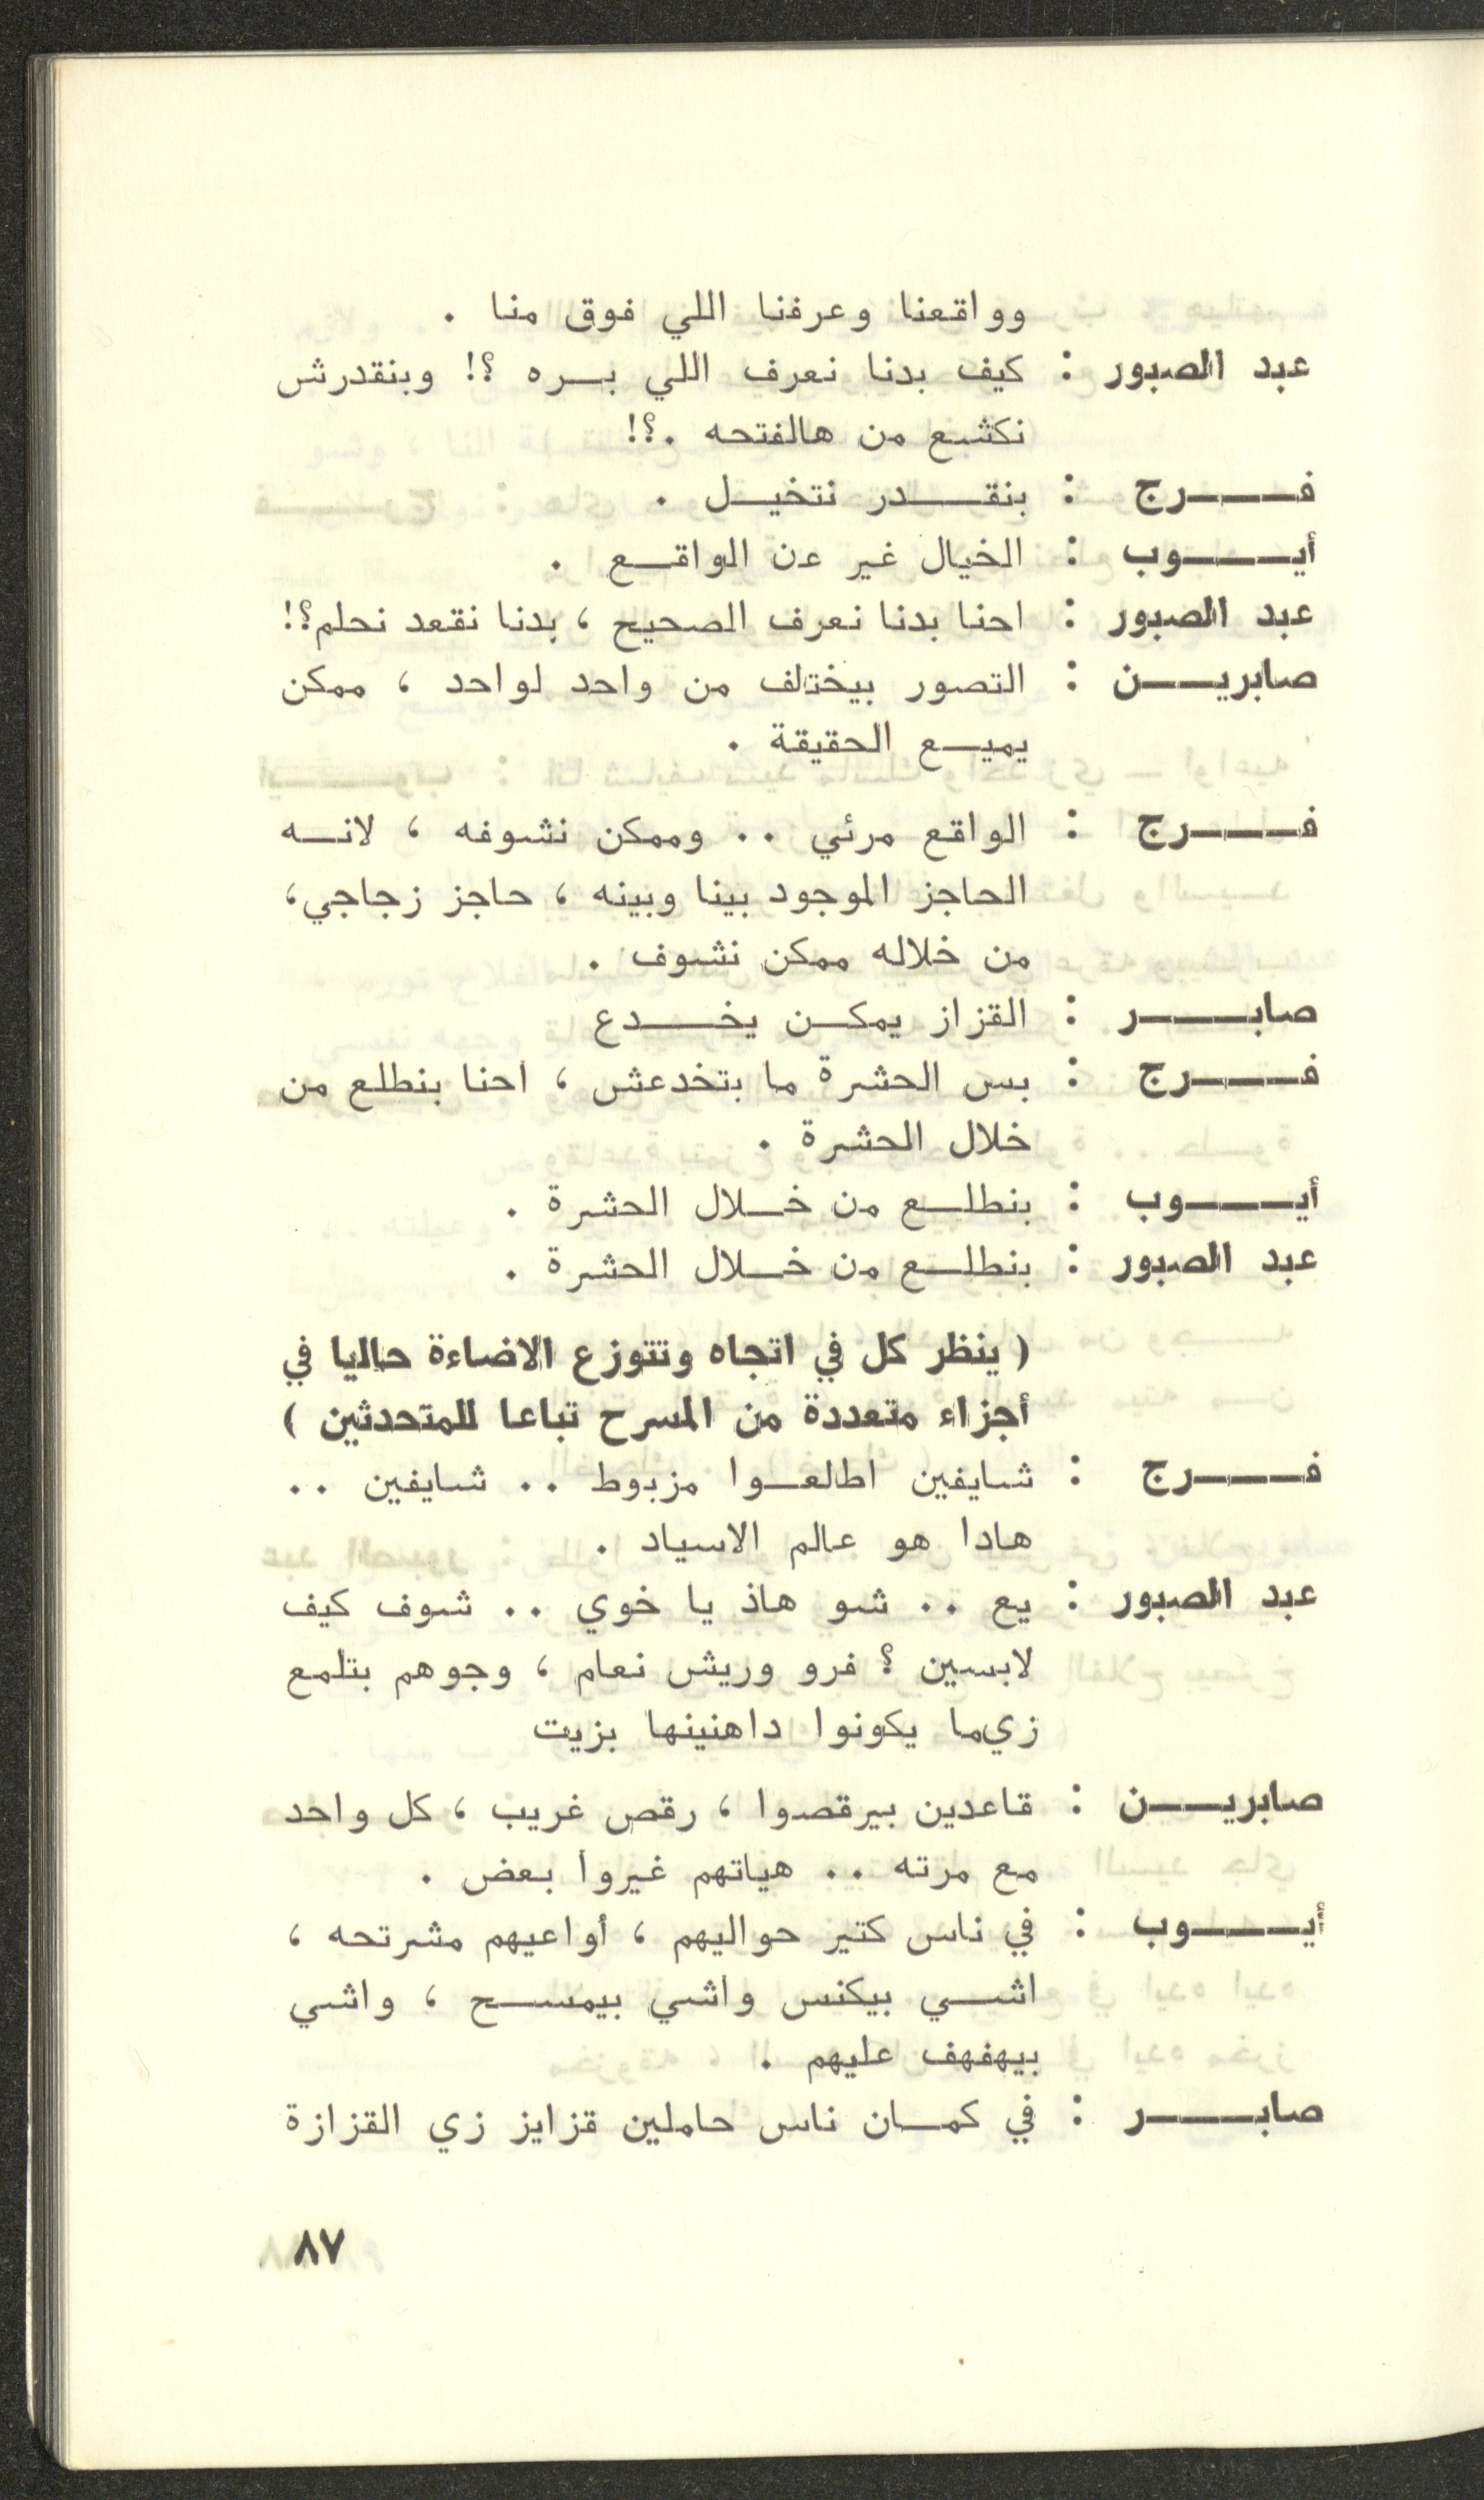 وواقعنا وعرفنا اللي فوق منا .
عبد الصبور : كيف بدنا نعرف اللي بره ؟! وبنقدرش
نكشع من هالفتحه .؟!
فرج : بنقدر نتخيل .
أيوب : الخيال غير عن الواقع .
عبد الصبور : احنا بدنا نعرف الصحيح ، بدنا نقعد نحلم؟!
صابرين : التصور بيختلف من واحد لواحد ، ممكن
يميع الحقيقة .
فرج : الواقع مرئي .. وممكن نشوفه ، لانه
الحاجز الموجود بينا وبينه ، حاجز زجاجي،
من خلاله ممكن نشوف .
صابر : القزاز يمكن يخدع
فرج : بس الحشرة ما بتخدعش ، احنا بنطلع من
خلال الحشرة .
أيوب : بنطلع من خلال الحشرة .
عبد الصبور : بنطلع من خلال الحشرة .
( ينظر كل في اتجاه وتتوزع الاضاءة حاليا في
أجزاء متعددة من المسرح تباعا للمتحدثين )
فرج : شايفين اطلعوا مزبوط .. شايفين ..
هادا هو عالم الاسياد .
عبد الصبور : يع .. شو هاذ يا خوي .. شوف كيف
لابسين ؟ فرو وريش نعام ، وجوهم بتلمع
زي ما يكونوا داهنينها بزيت
صابرين : قاعدين بيرقصوا ، رقص غريب ، كل واحد
مع مرته .. هياتهم غيروا بعض .
أيوب : في ناس كتير حواليهم ، أواعيهم مشرتحه ،
اشي بيكنس واشي بيمسح ، واشي
بيهفهف عليهم .
صابر : في كمان ناس حاملين قزايز زي القزازة
٨٧